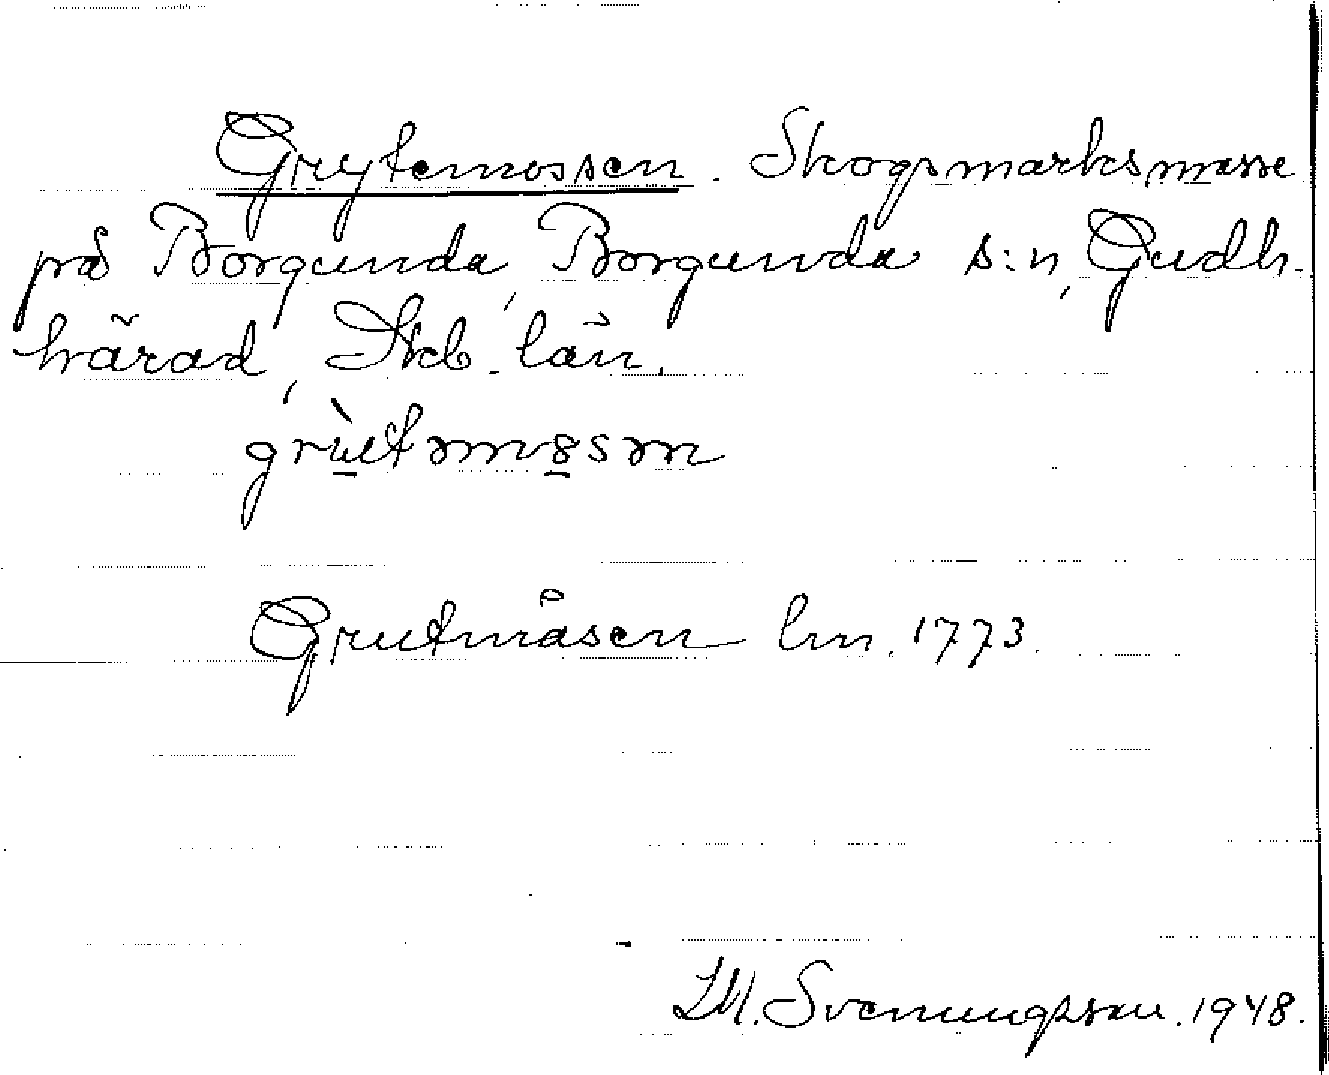 Grytemossen. Skogsmarksmosse
på Borgunda, Borgunda s:n, Gudh.
härad, Skb. län.
Grutmåsen lm. 1773.
Svenungsson. 1948.